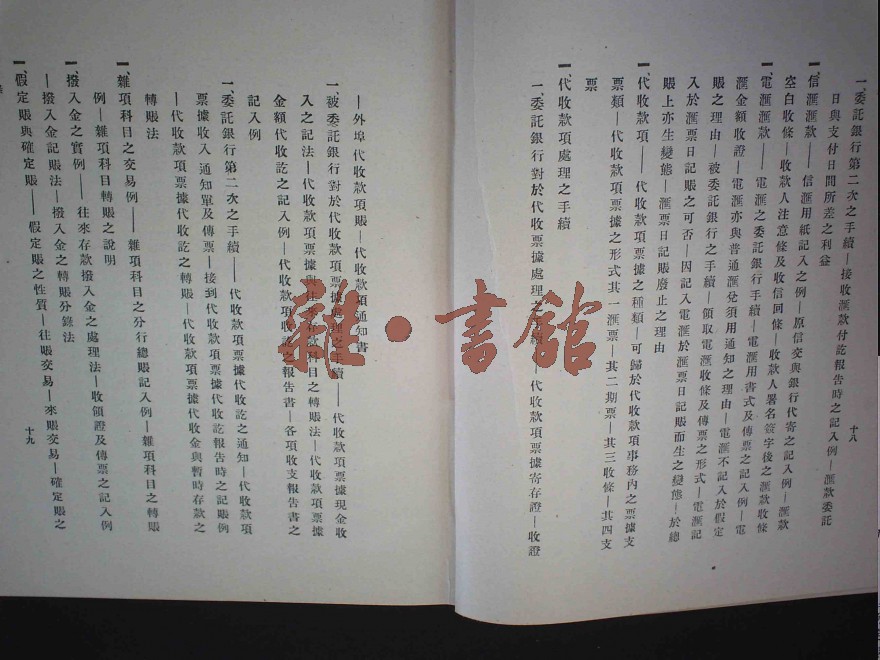 一、委託銀行第二次之手續—接收滙款付訖報告時之記入例—滙款委託
日與支付日間所差之利益
一、信滙滙款——信滙用紙記入之例—原信交與銀行代寄之記入例—滙款
空白收條—收款人注意條及收信回條—收款人署名簽字後之滙款收條
一、電滙滙款——電滙之委託銀行手續—電滙用書式及傳票之記入例—電
滙金額收證—電滙亦與普通滙兌須用通知之理由—電滙不記入於假定
賬之理由—被委託銀行之手續—領取電滙收條及傳票之形式—電滙記
入於滙票日記賬之可否—因記入電滙於滙票日記賬而生之變態—於總
賬上亦生變態—滙票日記賬廢止之理由
一、代收款項——代收款項票據之種類—可歸於代收款項事務內之票據支
票類—代收款項票據之形式其一滙票—其二期票—其三收條—其四支
票
一、代收款項處理之手續
一、委託銀行對於代收票據處理之手續——代收款項票據寄存證—收證
十八
—外埠代收款項賬—代收款項通知書
一、被委託銀行對於代收款項票據處理之手續——代收款項票據現金收
入之記法—代收款項票據與往來存款科目之轉賬法—代收款項票據
金額代收訖之記入例—代收款項收訖之報告書—各項收支報告書之
記入例
一、委託銀行第二次之手續——代收款項票據代收訖之通知—代收款項
票據收入通知單及傳票—接到代收款項票據代收訖報告時之記賬例
—代收款項票據代收訖之轉賬—代收款項票據代收金與暫時存款之
轉賬法
一、雜項科目之交易例——雜項科目之分行總賬記入例—雜項科目之轉賬
例—雜項科目轉賬之說明
一、撥入金之實例——往來存款撥入金之處理法—收領證及傳票之記入例
—撥入金記賬法—撥入金之轉賬分錄法
一、假定賬與確定賬——假定賬之性質—往賬交易—來賬交易—確定賬之
十九
雜·書館